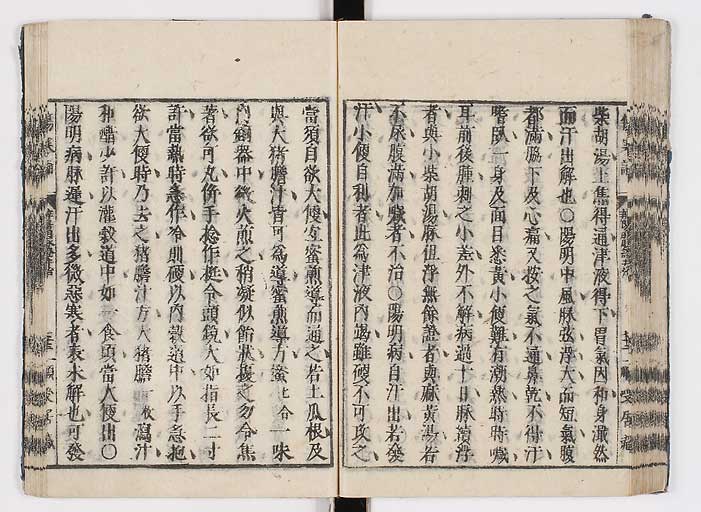 柴胡湯上焦得通津液得下胃氣因和身濈然
而汗出解也〇陽明中風脉弦浮大而短氣腹
都滿脇下及心痛又按之氣不通鼻乾不得汗
嗜臥一身及面目悉黃小便難有潮熱時時噦
耳前後腫刺之小差外不解病過十日脉續浮
者與小柴胡湯脉但浮無餘證者與麻黃湯若
不尿腹滿加噦者不治〇陽明病自汗出若發
汗小便自利者此爲津液內竭雖硬不可攻之
當須自欲大便宜蜜煎導而通之若土瓜根及
與大猪膽汁皆可爲導蜜煎導方蜜七合一味
內銅器中微火煎之稍凝似飴狀擾之勿令焦
著欲可丸併手捻作挺令頭銳大如指長二寸
許當熱時急作冷則硬以內穀道中以手急抱
欲大便時乃去之猪膽汁方大猪膽一枚瀉汁
和醋少許以灌穀道中如一食頃當大便出〇
陽明病脉遲汗出多微惡寒者表未解也可發